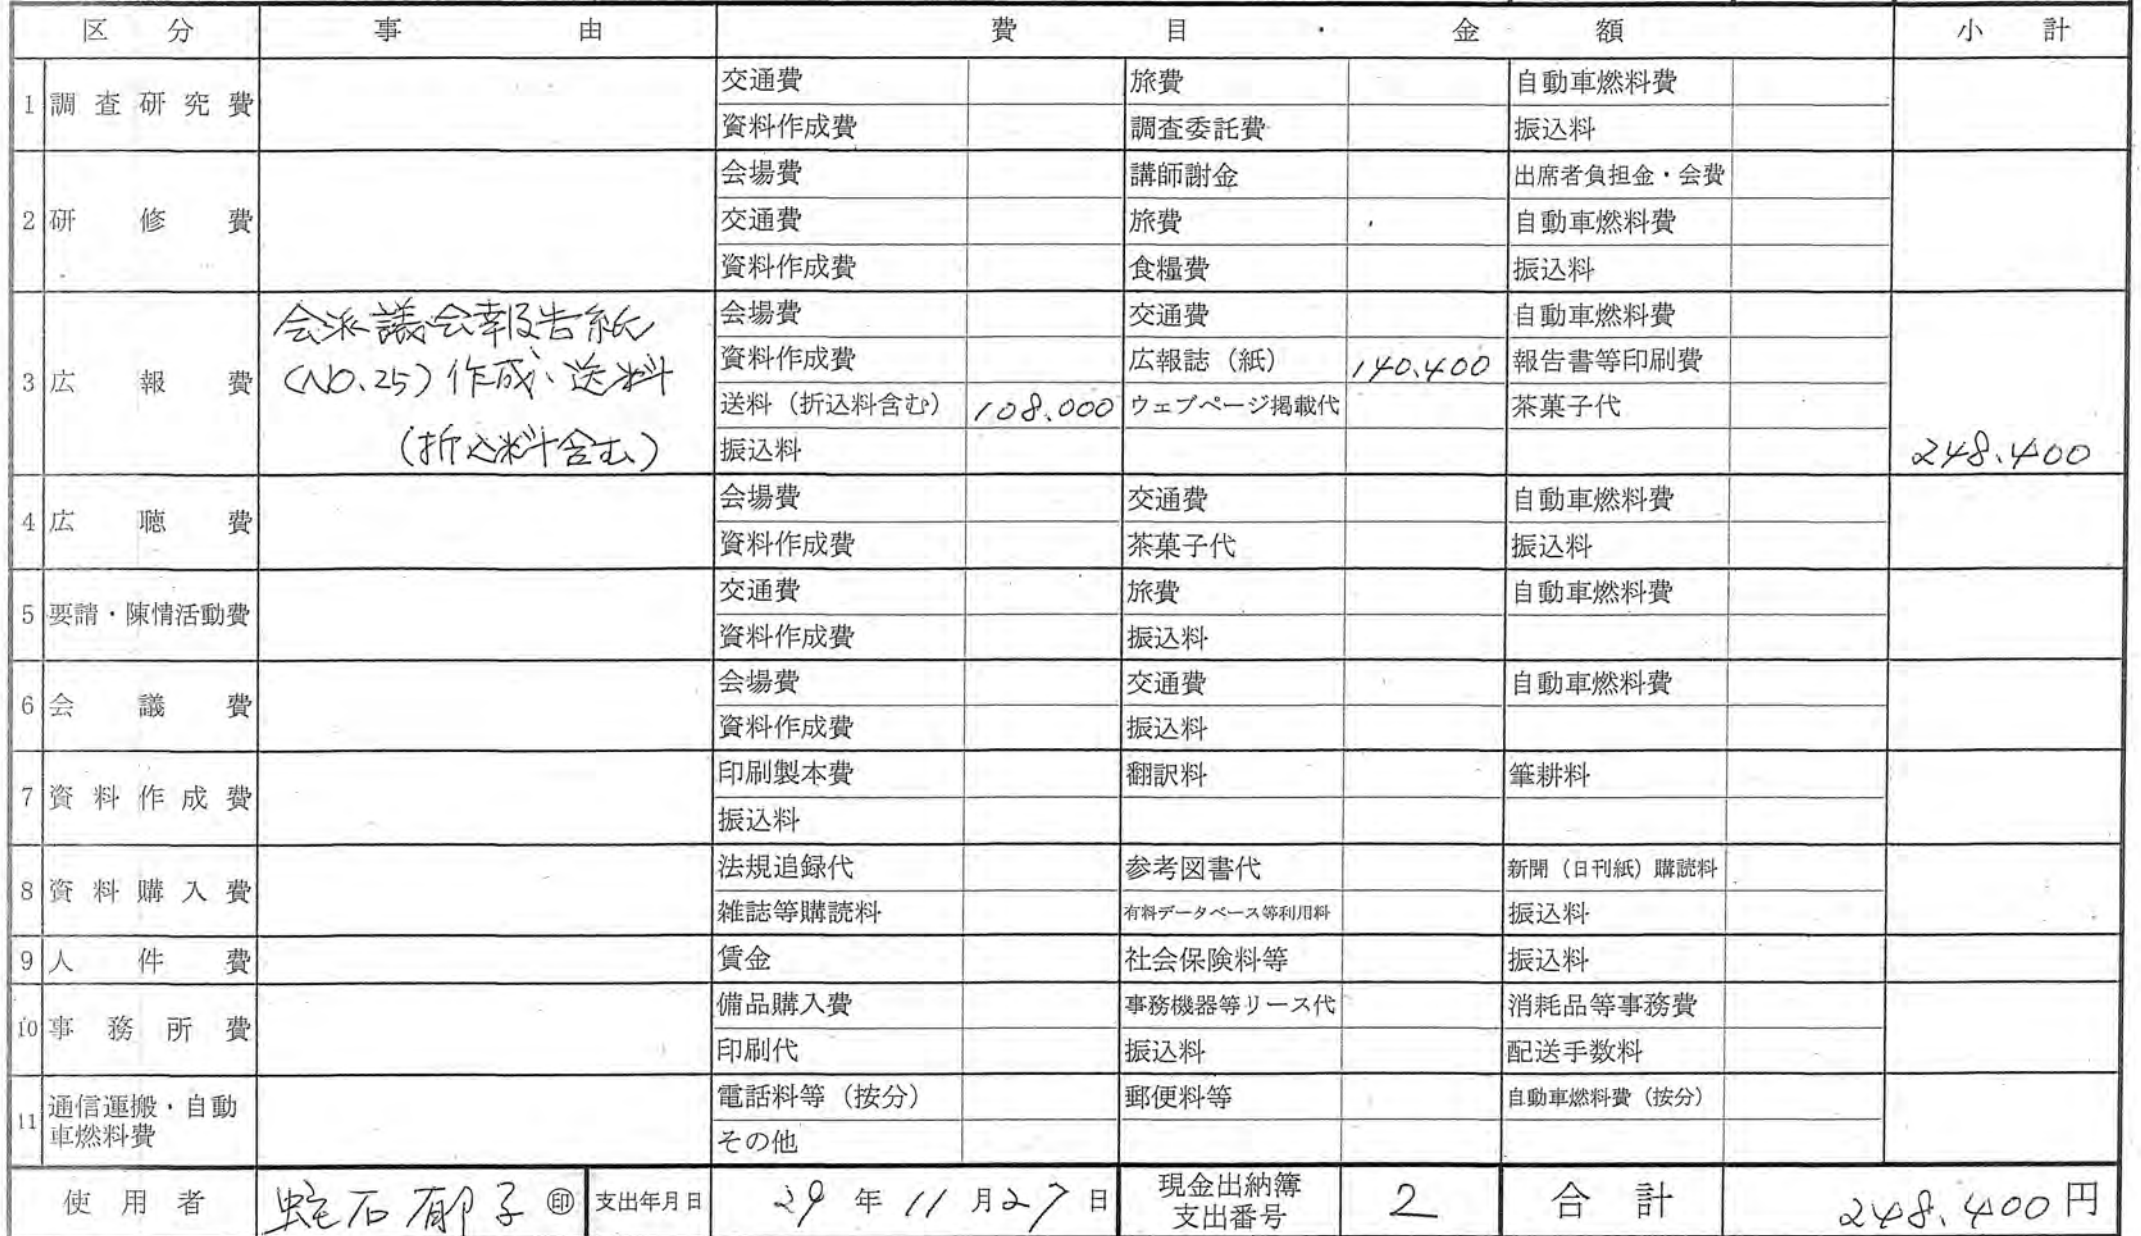 区分 事由 費目・金額 小計
1 調査研究費 交通費 旅費 自動車燃料費
資料作成費 調査委託費 振込料
2 研修費 会場費 講師謝金 出席者負担金・会費
交通費 旅費 自動車燃料費
資料作成費 食糧費 振込料
3 広報費
会派議会報告紙
(NO.25)作成、送料
(折込料含む)
会場費 交通費 自動車燃料費
資料作成費 広報誌(紙) 140.400 報告書等印刷費
送料(折込料含む) 108.000 ウェブページ掲載代 茶菓子代
振込料 248.400
4 広聴費 会場費 交通費 自動車燃料費
資料作成費 茶菓子代 振込料
5 要請・陳情活動費 交通費 旅費 自動車燃料費
資料作成費 振込料
6 会議費 会場費 交通費 自動車燃料費
資料作成費 振込料
7 資料作成費 印刷製本費 翻訳料 筆耕料
振込料
8 資料購入費 法規追録代 参考図書代 新聞(日刊紙)購読料
雑誌等購読料 有料データベース等利用料 振込料
9 人件費 賃金 社会保険料等 振込料
10 事務所費 備品購入費 事務機器等リース代 消耗品等事務費
印刷代 振込料 配送手数料
11 通信運搬・自動
車燃料費
電話料等(按分) 郵便料等 自動車燃料費(按分)
その他
使用者 蛇石郁子 ㊞ 支出年月日 29年11月27日 現金出納簿
支出番号 2 合計 248.400円